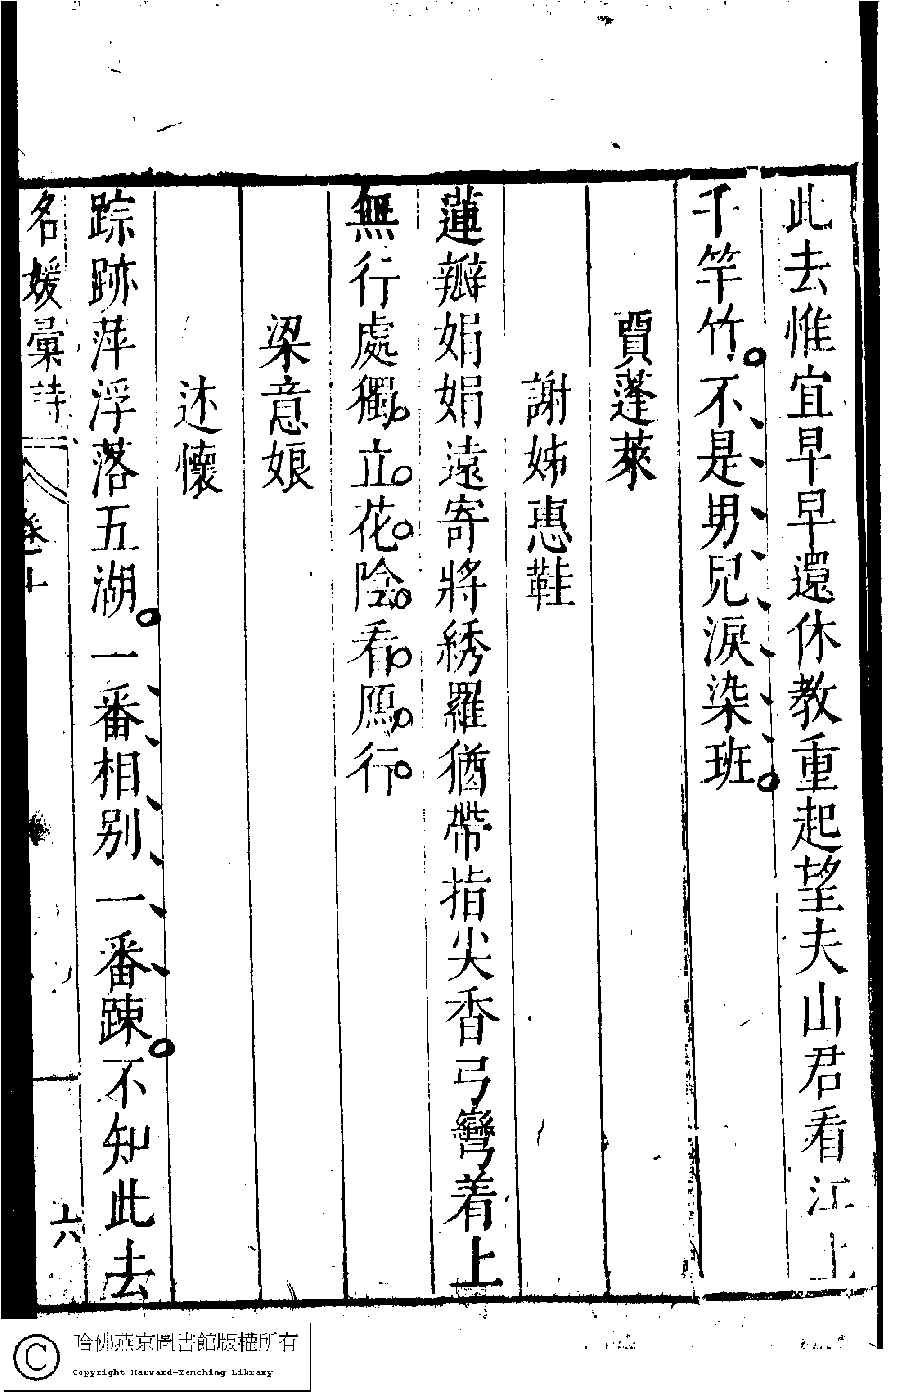 此去惟宜早早還休教重起望夫山君看江上
千竿竹不是男兒淚染班
賈蓬萊
謝姊惠鞋
蓮瓣娟娟遠寄將綉羅猶帶指尖香弓彎着上
無行處獨立花陰看鴈行
梁意娘
述懷
踪跡萍浮落五湖一番相别一番踈不知此去
名媛彙詩 卷十 六
哈佛燕京圖書館版權所有
Copyright Harvard-Yenching Library